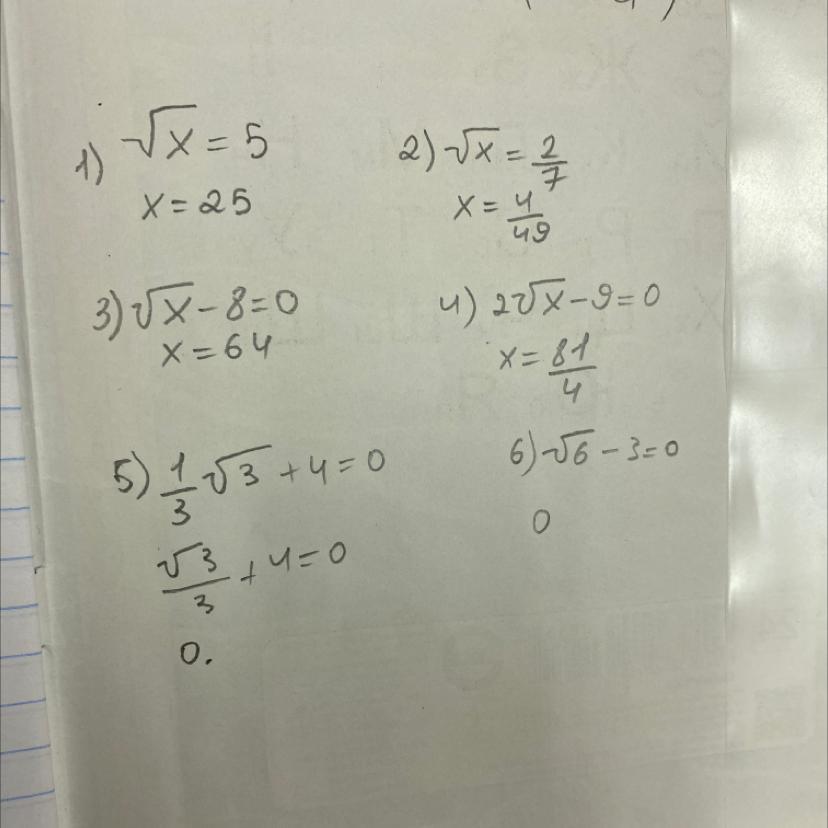 1) √x = 5
x = 25
2) √x = 2/7
x = 4/49
3) √x - 8 = 0
x = 64
4) 2√x - 9 = 0
x = 81/4
5) 1/3 √3 + 4 = 0
√3/3 + 4 = 0
0.
6) √6 - 3 = 0
0